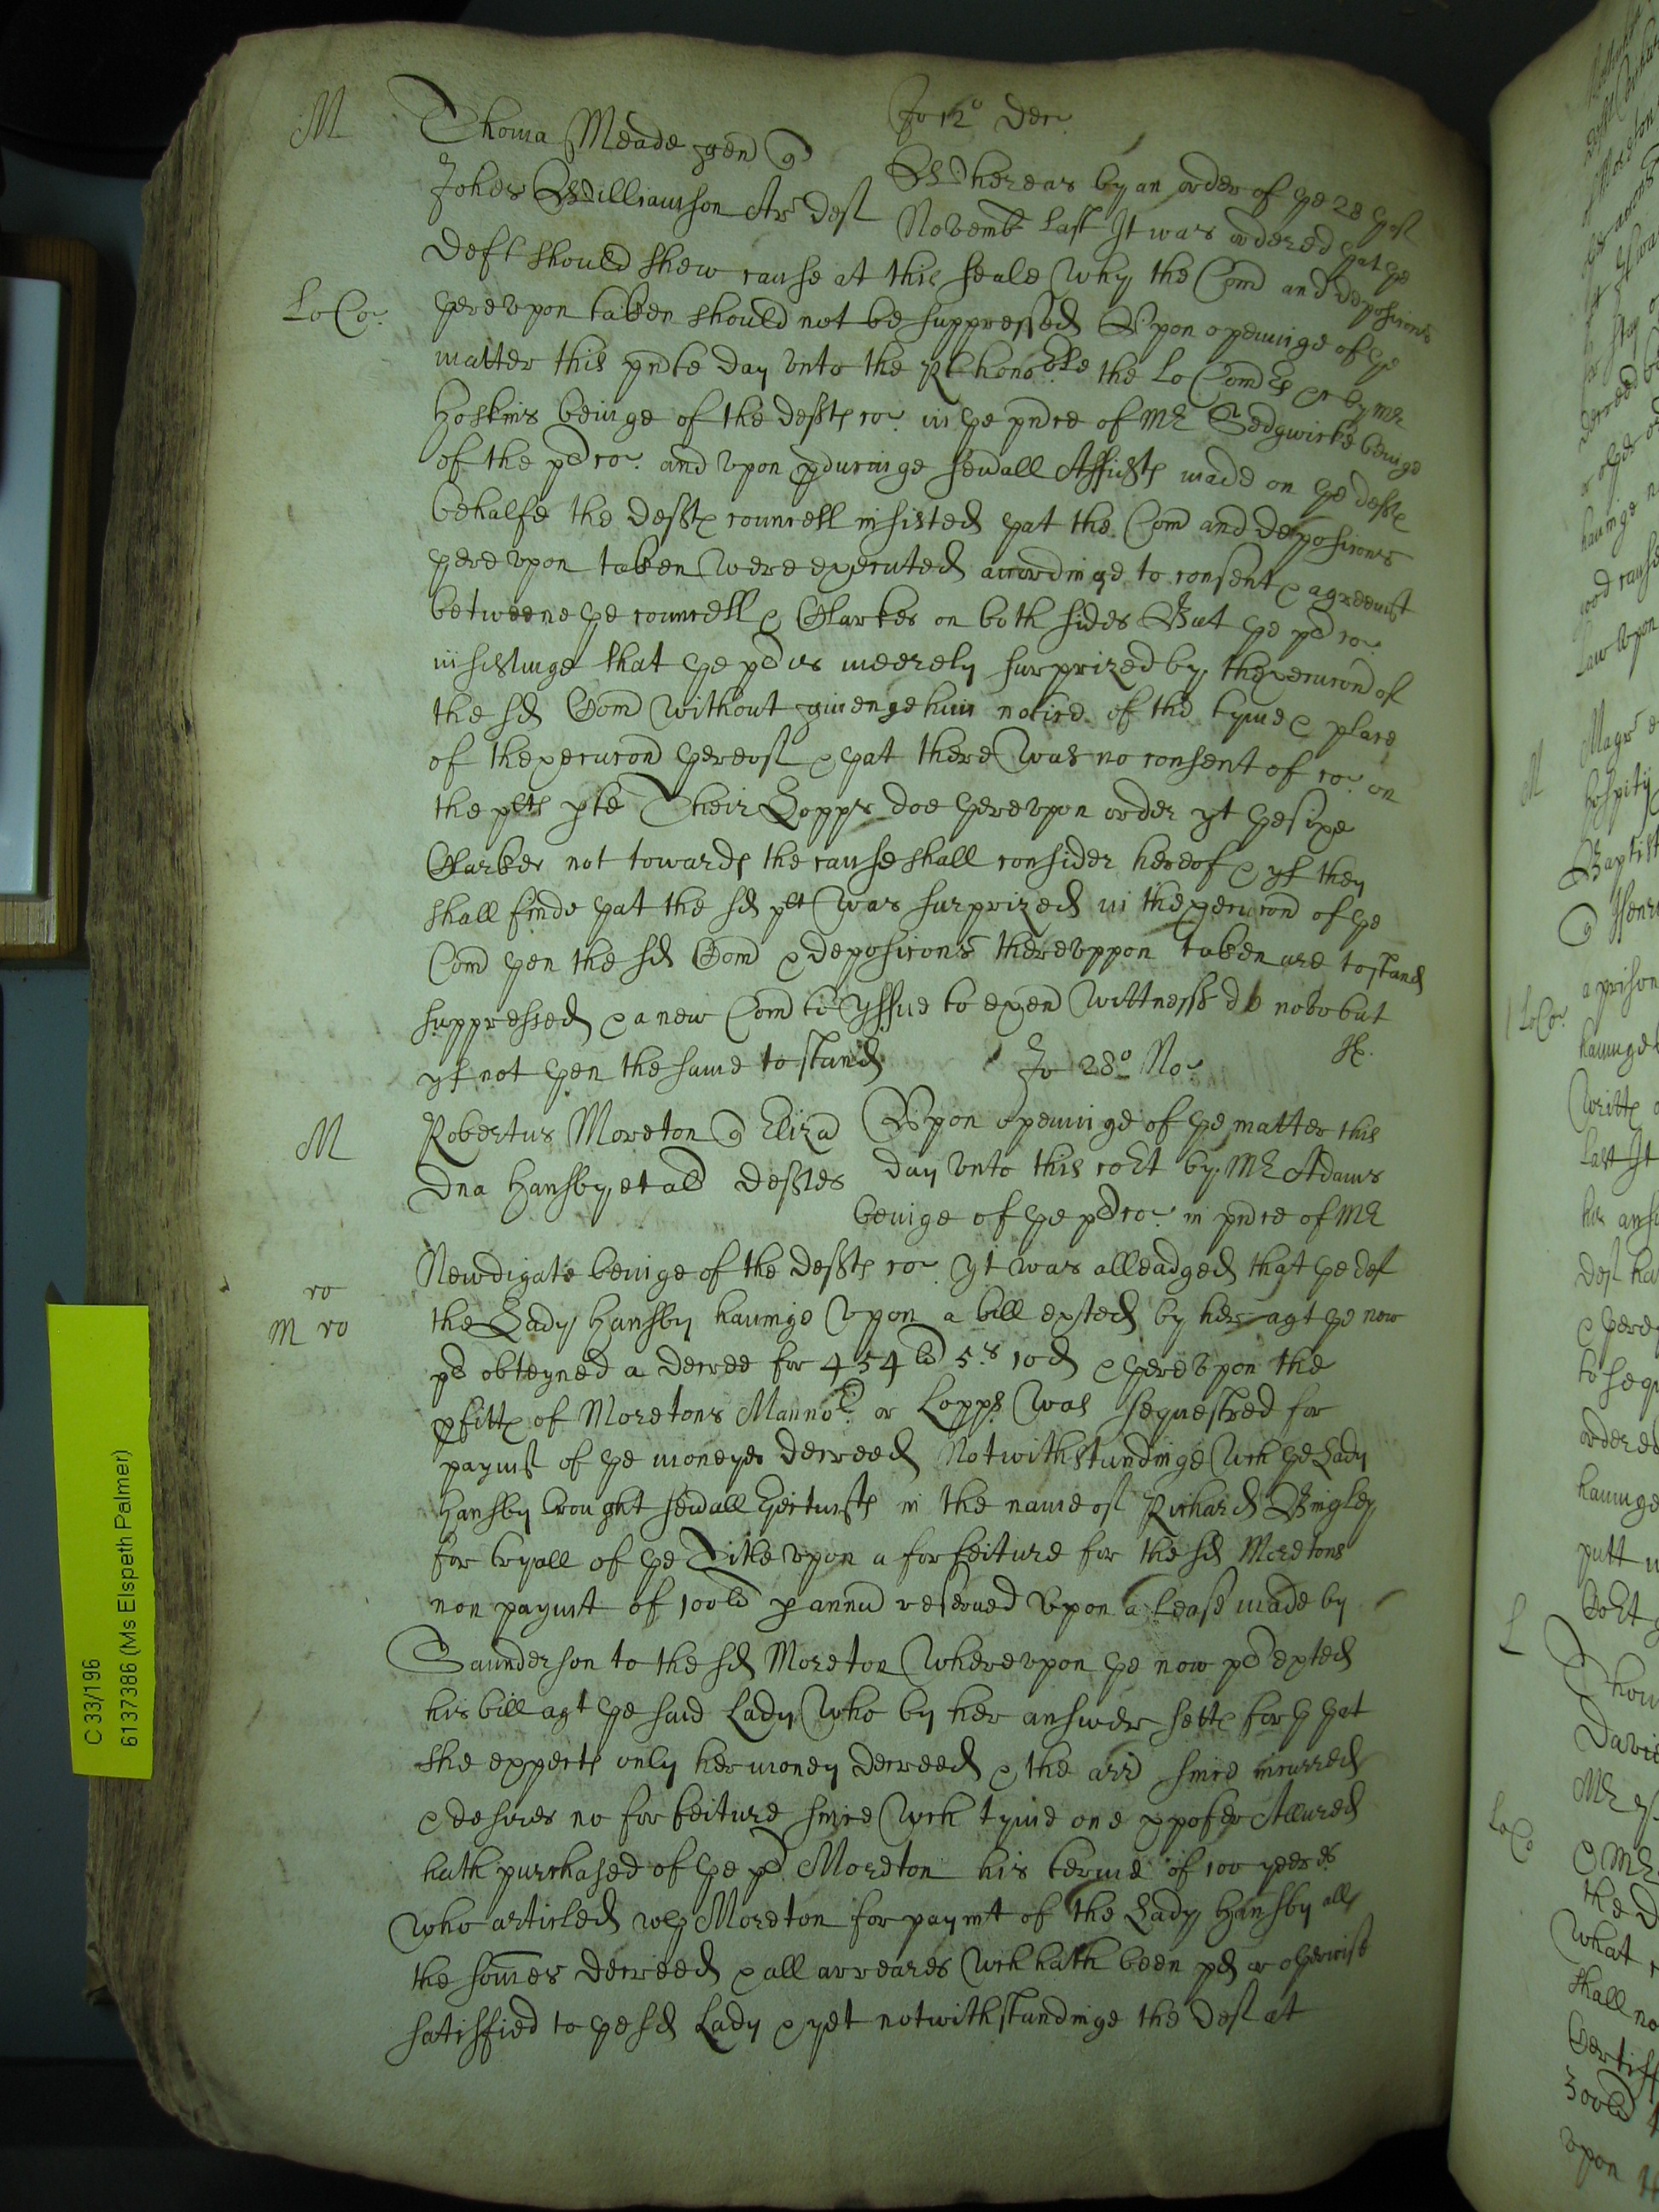 Jo 12º Dec
M Thoma Meade gen q
Whereas by an order of ye 28 of
Johes Williamson Ar def Novemb last It was ordered yat ye
Deft should shew cause at this seale why the Com and deposicons
Lo Co: yerevpon taken should not be suppressed Vpon openinge of ye
matter this pnte day vnto the Rt honoble the Lo Comrs &c by Mr
Hoskins beinge of the defts co: in ye pnce of Mr Sedgwicke beinge
of the pl co: and vpon pducinge seuall Affidts made on ye defts
behalfe the defts councell insisted yat the Com and deposicons
yerevpon taken were executed accordinge to consent & agreemt
betweene ye councell & Clarkes on both sides But ye pl co:
insistinge that ye pl is meerely surprized by thexecucon of
the sd Com without giueinge him notice of the tyme & place
of thexecucon yereof & yat there was no consent of co: on
the plts pte Their Lopps doe yerevpon order yt ye sixe
Clarkes not towards the cause shall consider hereof & yf they
shall finde yat the sd plt was surprized in thexecucon of ye
Com yen the sd Com & deposicons therevppon taken are to stand
suppressed & a new Com to yssue to exend wittnesss de nouo but
yf not yen the same to stand
Jo 28º No:
M Robertus Moreton q Eliza Vpon openinge of ye matter this
Dna Hansby et al deftes day vnto this cort by Mr Adams
beinge of ye pl co: in pnce of Mr
Newdigate beinge of the defts co: yt was alleadged that ye def
ro
m ro
the Lady Hansby hauinge vpon a bill exted by her agt ye now
pl obteyned a decree for 454li 5s 10d & yerevpon the
pfitts of Moretons Mannor or Lopps was sequestred for
paymt of ye moneyes decreed Notwithstandinge wch ye Lady
Hansby brought seuall Eiectmts in the name of Richard Bingley
for tryall of ye Title vpon a forfeiture for the sd Moretons
non paymt of 100li p annu reserued vpon a lease made by
Saunderson to the sd Moreton wherevpon ye now pl exted
his bill agt ye said Lady who by her answer setts forth yat
she expects only her money decreed & the arr since incurred
& desires no forfeiture since wch tyme one Allured
hath purchased of ye pl Moreton his terme of 100 yeeres
who articled wth Moreton for paymt of the Lady Hansby all
the somes decreed & all arreares wch hath been pd or otherwise
satisfied to ye sd Lady & yet notwithstandinge the def at
C 33/196
6137386 (Ms Elspeth Palmer)